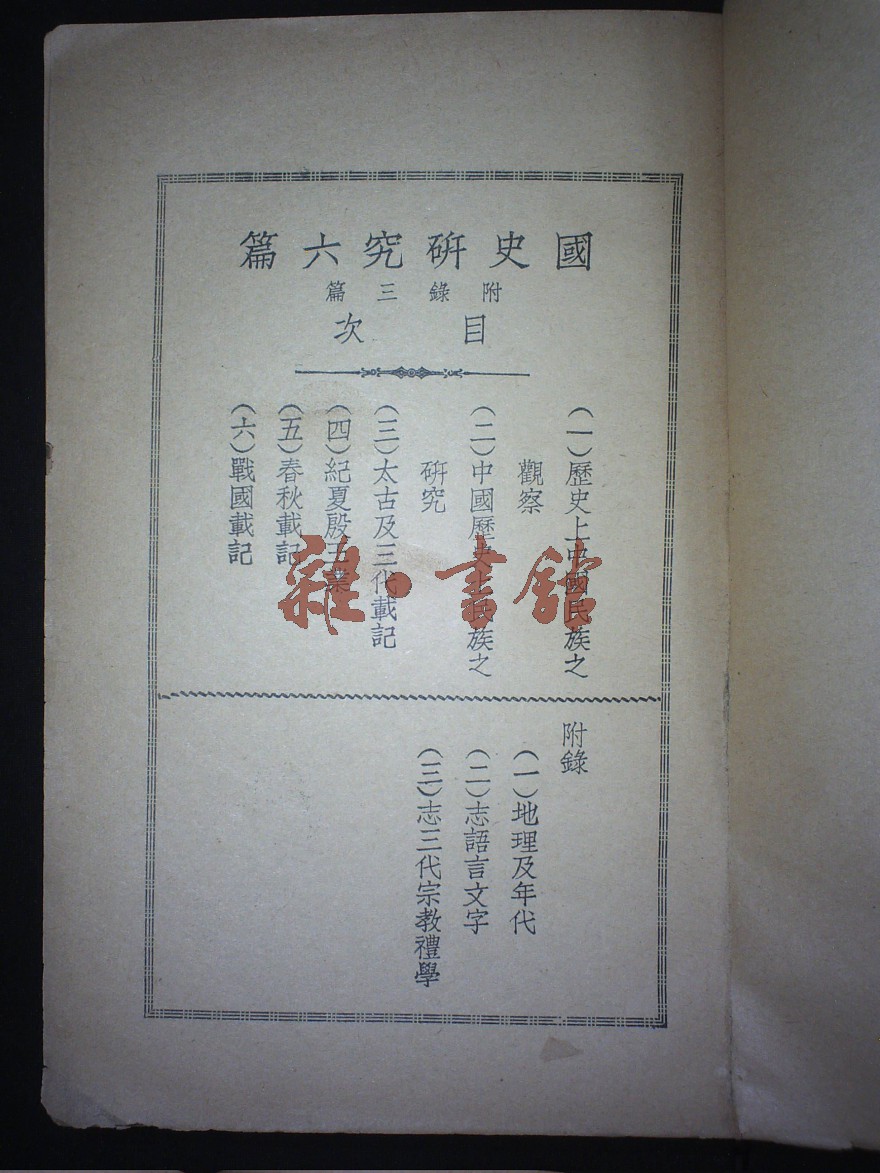 國史研究六篇
附錄三篇
目次
（一）歷史上中國民族之
觀察
（二）中國歷史上民族之
研究
（三）太古及三代載記
（四）紀夏殷王業
（五）春秋載記
（六）戰國載記
附錄
（一）地理及年代
（二）志語言文字
（三）志三代宗教禮學
雜·書館